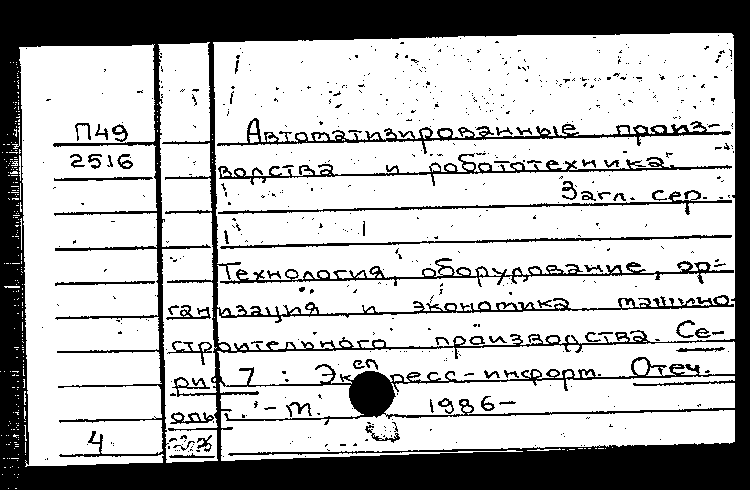 П49 Автоматизированные произ-
2516 водства и робототехника.
Загл. сер.
Технология, оборудование, ор-
ганизация и экономика машино-
строительного производства. Се-
рия 7 : Экспресс-информ. Отеч.
опыт. - М., 1986-
4